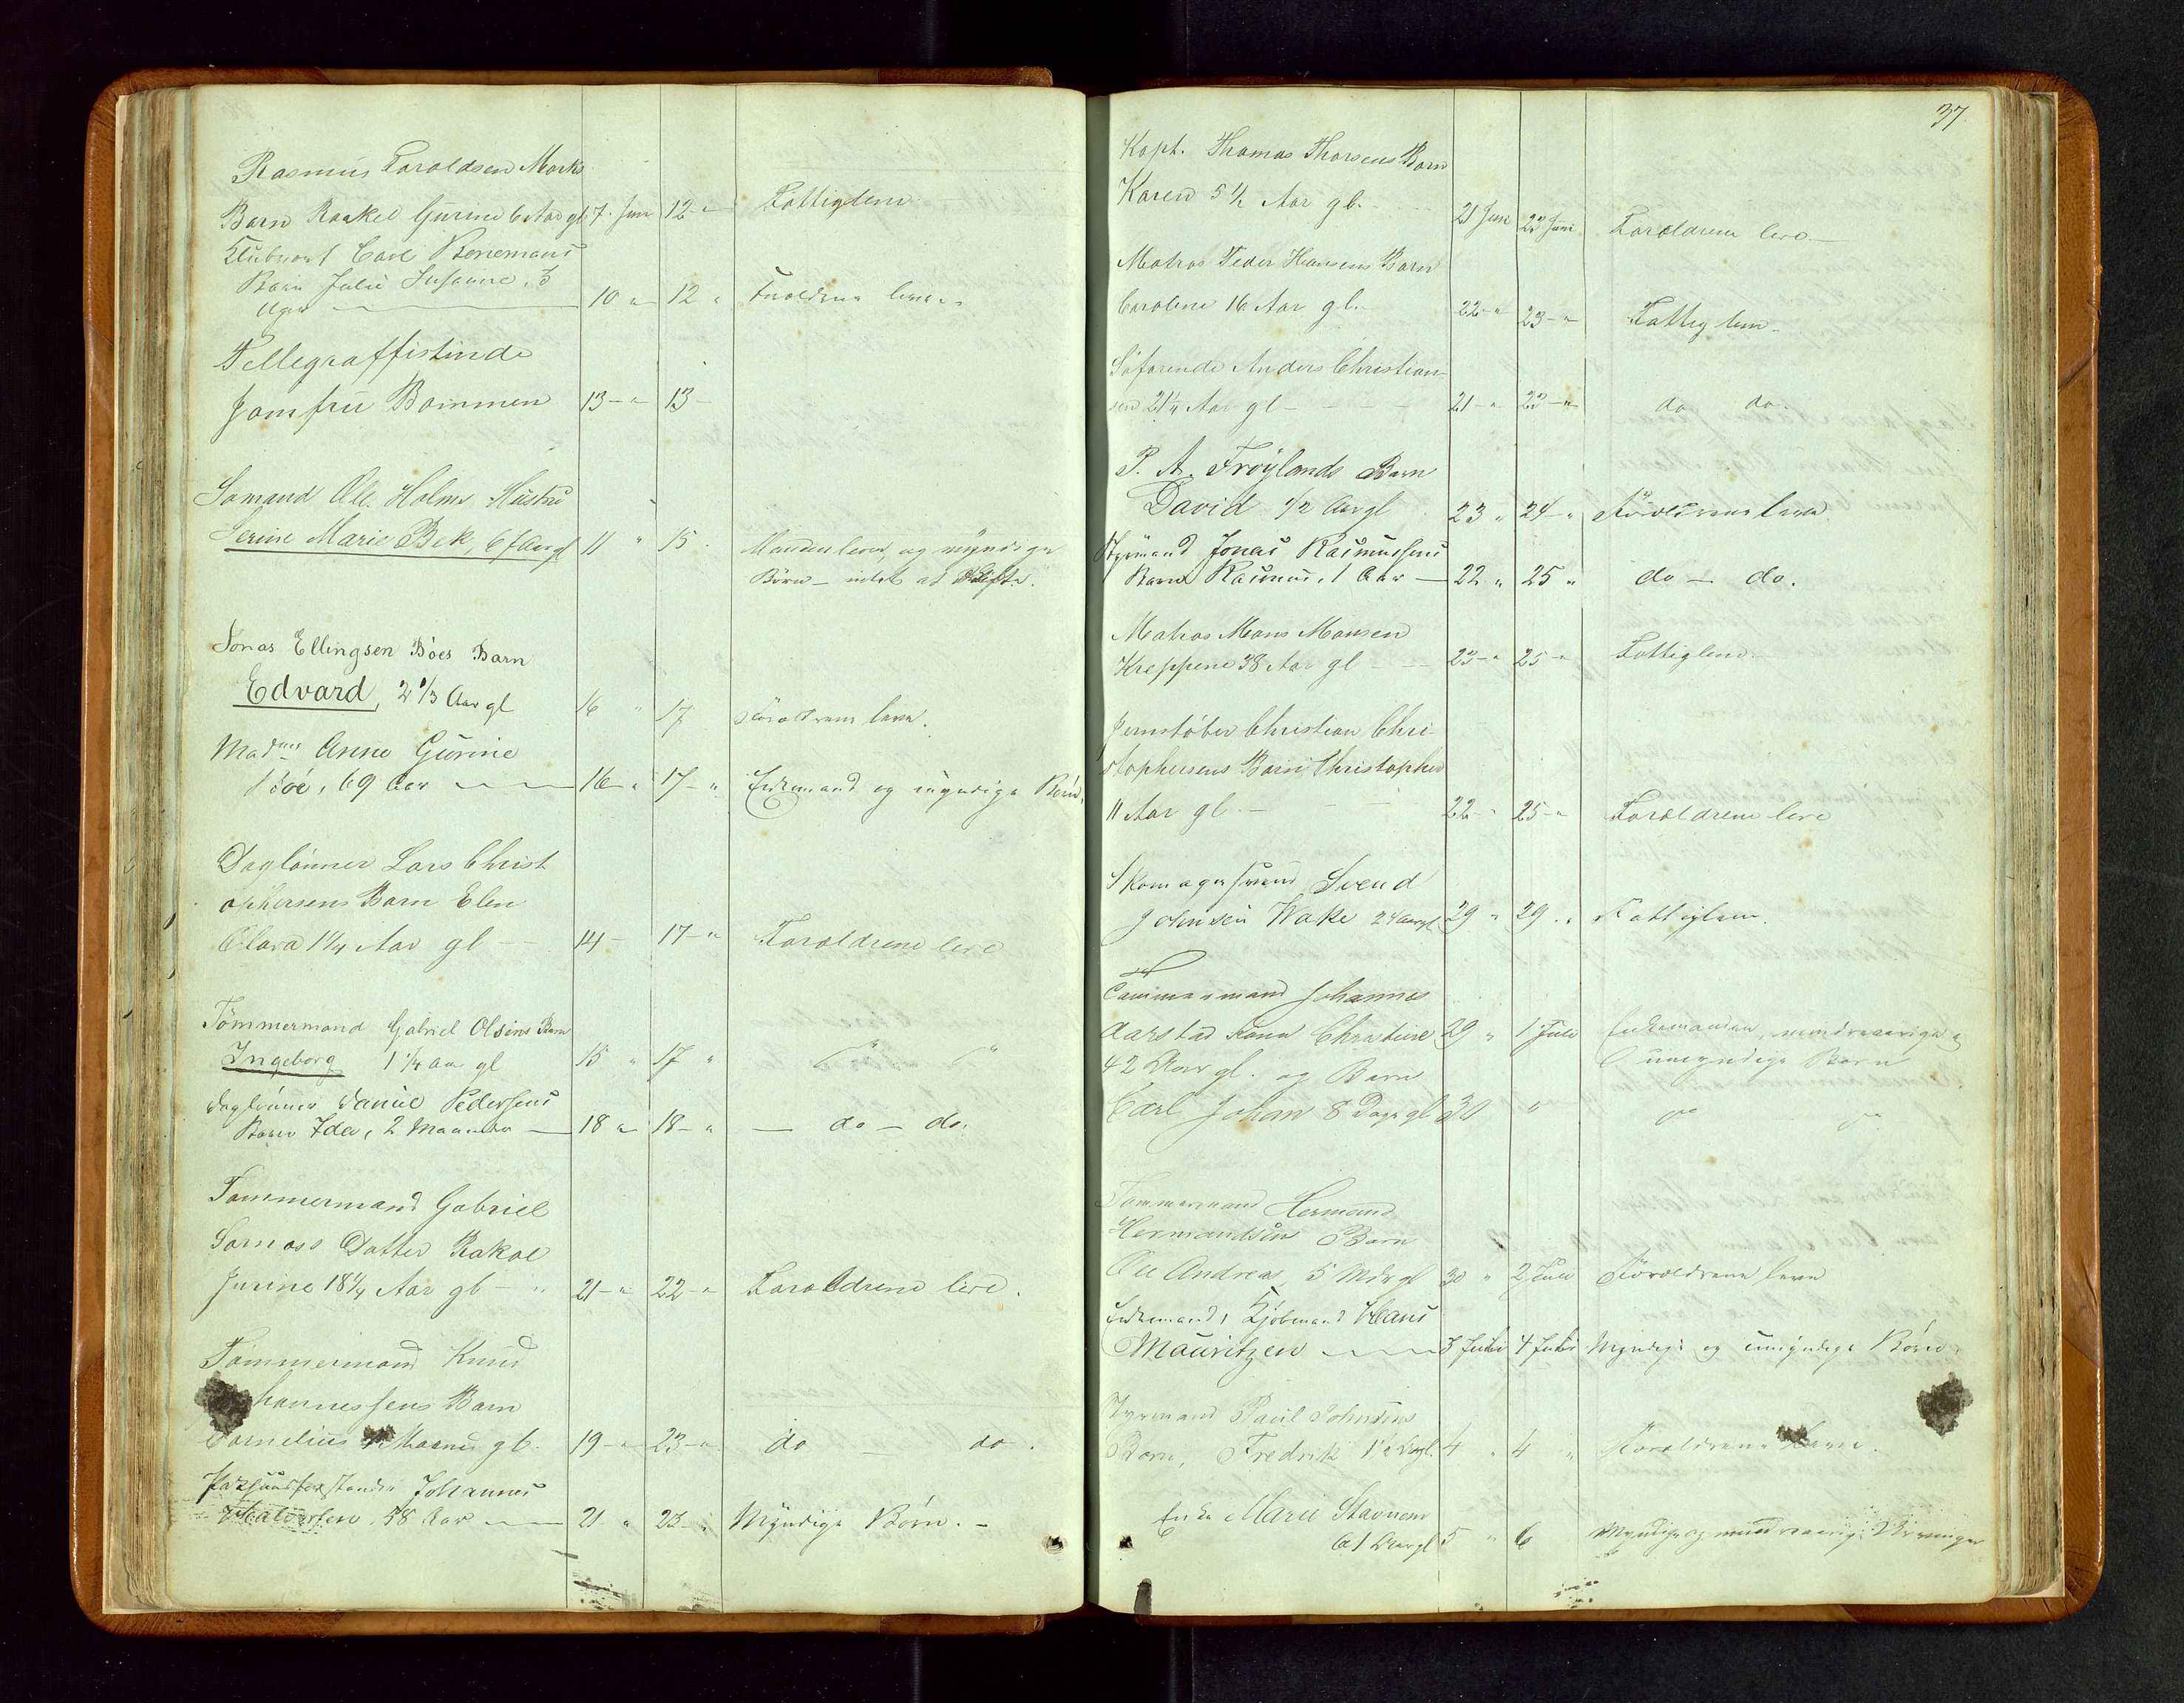 Rasmus Taraldsen Marks
Barn Raakel Gurine 6 Aar gl 7. Juni 12 " Fattiglem
Carl Bonemans
Barn Julie Susanne, 3
Uger 10 " 12 " Forældrene leve
Tellegraffistinde
Jomfru Bommen 13 " 13
Sømand Ole Holms Hustru
Serine Marie Bek, 11 " 15 Manden lever og myndige
Børn – intet at skifte.
Jonas Ellingsen Bóes Barn
Edvard, 2 1/3 Aar gl 16 " 17 Forældrene leve.
Madme Anne Gurine
Bóe, 69 Aar 16 " 17 " Enkemand og myndige Børn.
Daglónner Lars Christ
ophersens Barn Elen
Clara 1 1/4 Aar gl 14 17 " Forældrene leve
Tömmermand Gabriel Olsens Barn
Ingeborg 1 1/4 aar gl 15 " 17 " " "
Daglónner Daniel Pedersens
Barn Ida, 2 Maaneder 18 " 18 " – do – do.
Tømmermand Gabriel
Datter Rakal
Jurine 18 1/4 Aar gl 21 " 22 " Forældrene leve.
Tømmermand Knud
hannessens Barn
Cornelius Maaned gl. 19 " 23 " do – do.
Johannes
Halvorsen, 58 Aar 21 " 23 " Myndige Børn. –
37
Kapt. Thomas Thorsens Barn
Karen 5 1/2 Aar gl. 21 Juni 23 Juni Forældrene leve. –
Matros Peder Hansens Barn
Caroline 16 Aar gl. 22 " 23 " Fattiglem
Søfarende Anders Christian
sen 21 1/4 Aar gl 21 " 23 " do do.
P. A. Fröylands Barn
David 1/2 Aar gl 23 " 24 " Forældrene leve
Styrmand Jonas Rasmussens
Barn Rasmus, 1 Aar 22 " 25 " do – do.
Matros Mons Monsen
Kreppene 38 Aar gl 23 " 25 " Fattiglem
Jernstøber Christian Chri-
stophersens Barn Christopher
11 Aar gl. – 22 " 25 " Forældrene leve
Skomagersvend Svend
Johnsen Wake 24 Aar gl 29 " 29 " Fattiglem.
Tømmermand Johannes
Aarstad Kone Christine 29 " 1 Juli Enkemanden, mindreaarige og
42 Aar gl. og Barn umyndige Børn
Carl Johan 8 Dage gl 30 " " "
Tømmermand Hermand
Hermandsen Barn
Ole Andreas, 5 Mdr gl 30 " 2 Juli Forældrene leve
Enkemand, Kjøbmand Hans
Mauritzen 3 Juli 4 Juli Myndige og umyndige Børn.
Styrmand Paul Johnsens
Barn, Fredrik 1 1/2 Aar gl. 4 " 4 " Forældrene leve.
Enke Marie Stavnem
61 Aar gl 5 " 6 Myndige og mindreaarige Arvinger